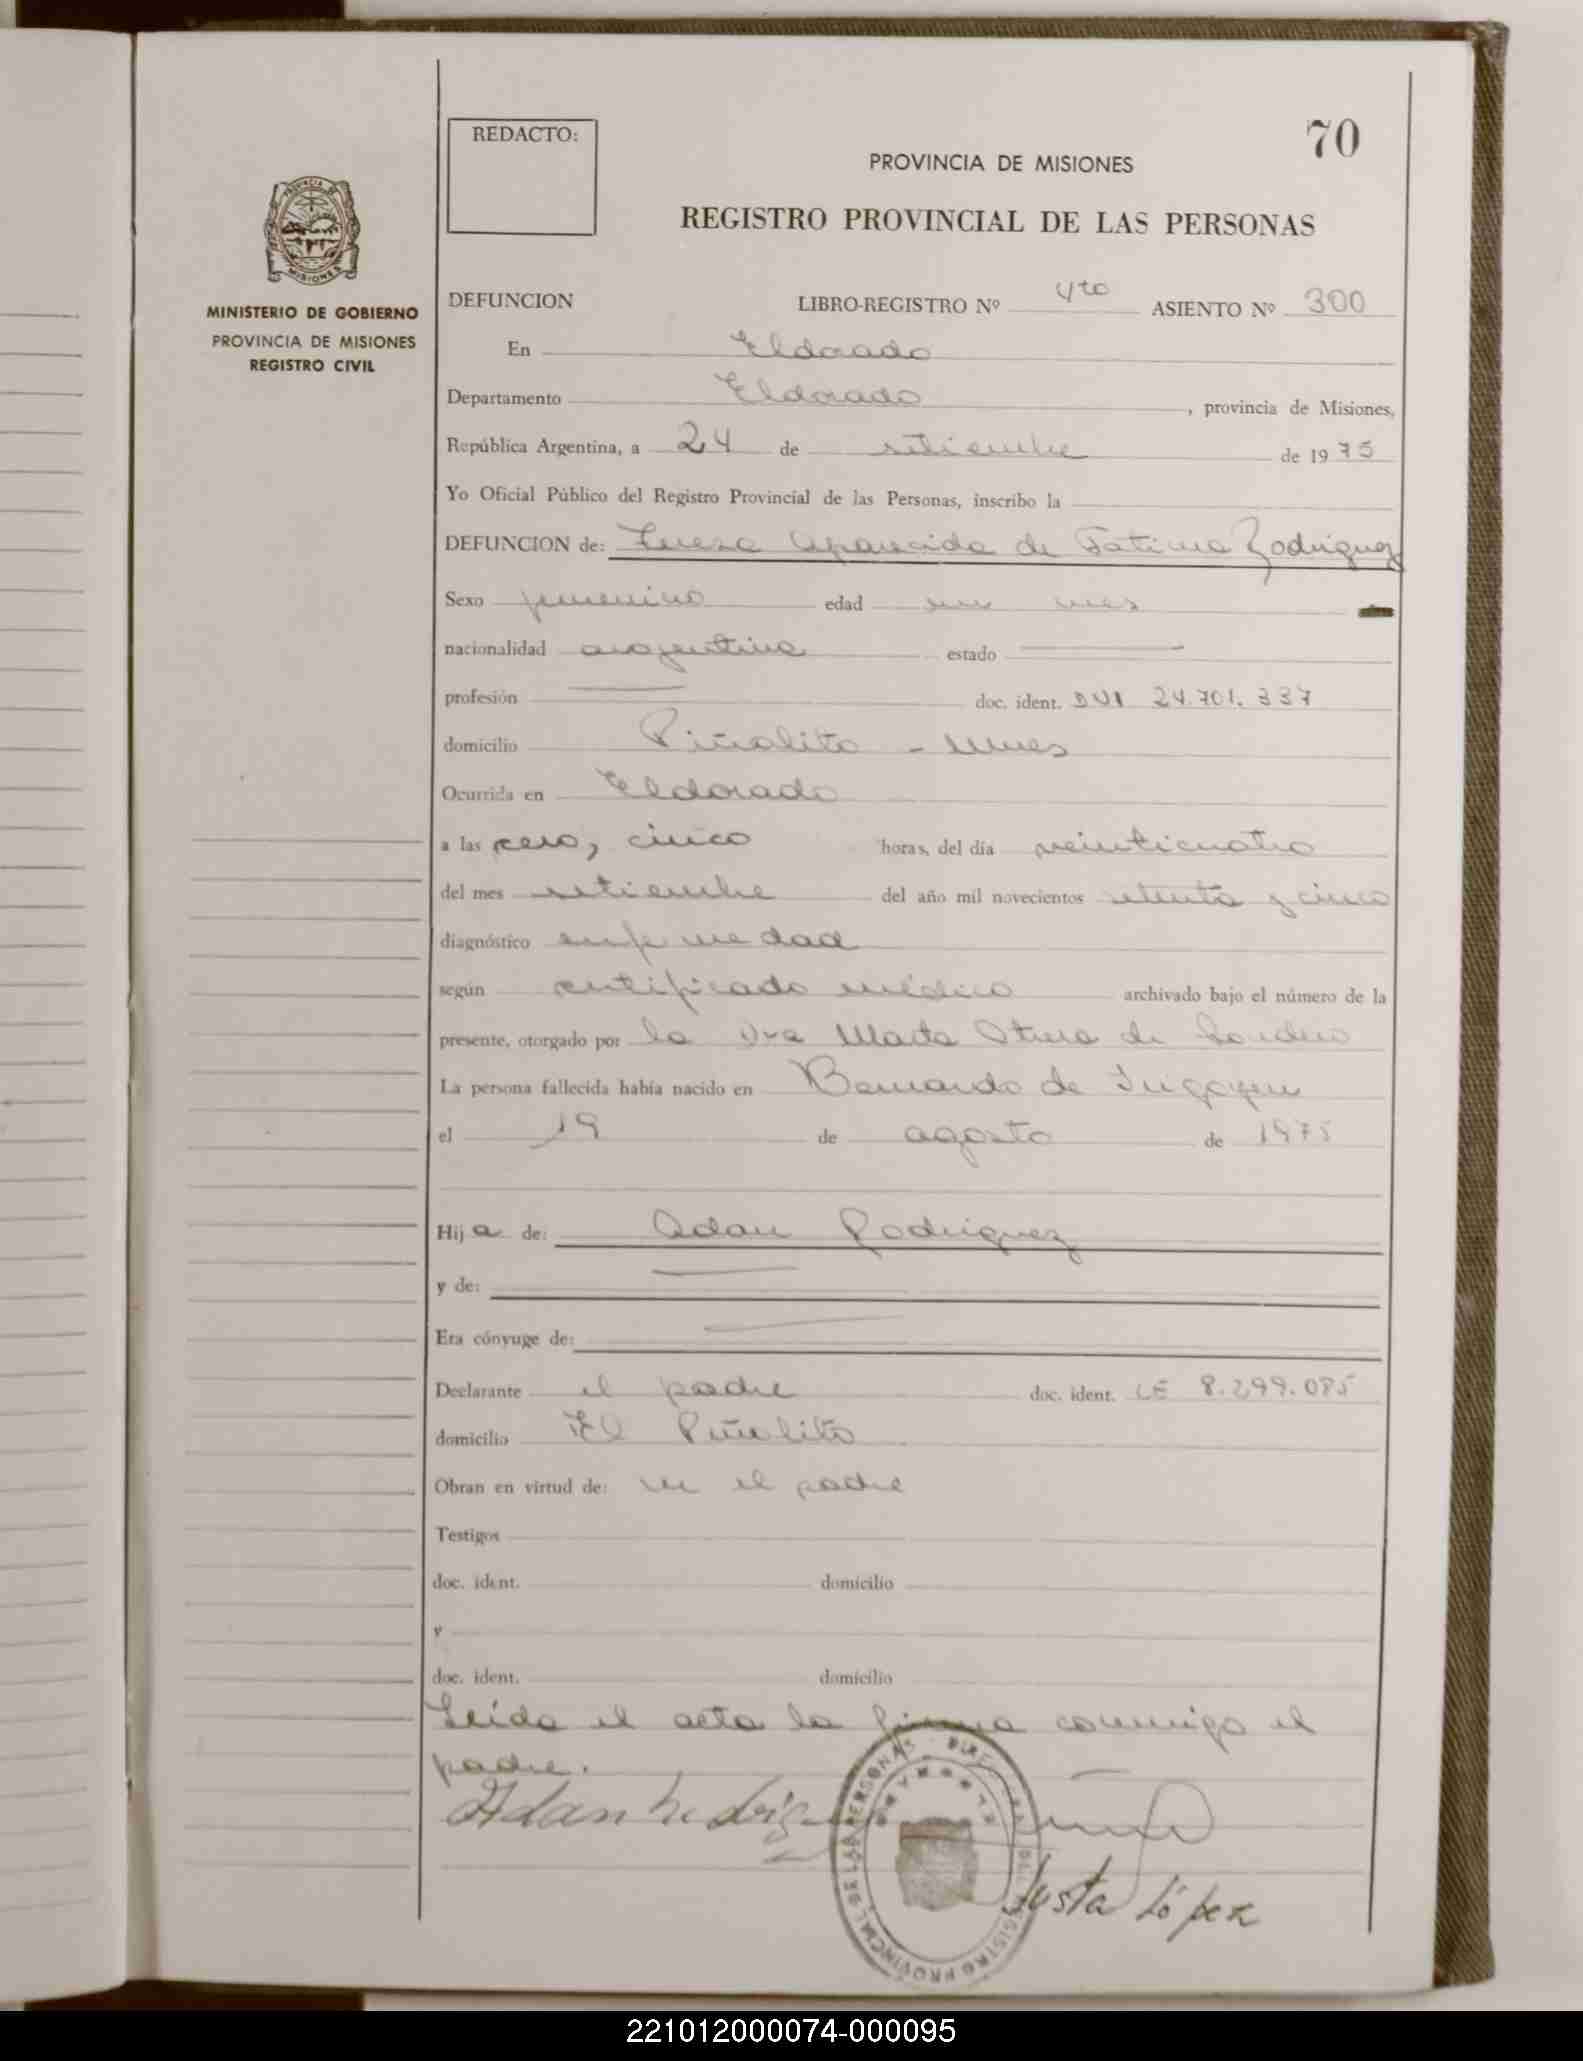 70
REDACTO:
PROVINCIA DE MISIONES
REGISTRO PROVINCIAL DE LAS PERSONAS
PROVINCIA DE
MISIONES
MINISTERIO DE GOBIERNO
PROVINCIA DE MISIONES
REGISTRO CIVIL
DEFUNCION LIBRO-REGISTRO Nº 4to ASIENTO Nº 300
En Eldorado
Departamento Eldorado, provincia de Misiones,
República Argentina, a 24 de setiembre de 1975
Yo Oficial Público del Registro Provincial de las Personas, inscribo la
DEFUNCION de: Teresa Aparecida de Fatima Rodriguez
Sexo femenino edad un mes
nacionalidad argentina estado —
profesión — doc. ident. DNI 24.701.337
domicilio Piñalito - Mnes
Ocurrida en Eldorado
a las cero, cinco horas, del día veinticuatro
del mes setiembre del año mil novecientos setenta y cinco
diagnóstico enfermedad
según certificado médico archivado bajo el número de la
presente, otorgado por la Dra Marta de
La persona fallecida había nacido en Bernardo de Irigoyen
el 19 de agosto de 1975
Hija de: Adan Rodriguez
y de: —
Era cónyuge de: —
Declarante el padre doc. ident. LE 8.299.085
domicilio El Piñalito
Obran en virtud de: ser el padre
Testigos
doc. ident. domicilio
y
doc. ident. domicilio
Leida el acta la firma conmigo el
padre.
Adan Rodrig
Justa López
221012000074-000095